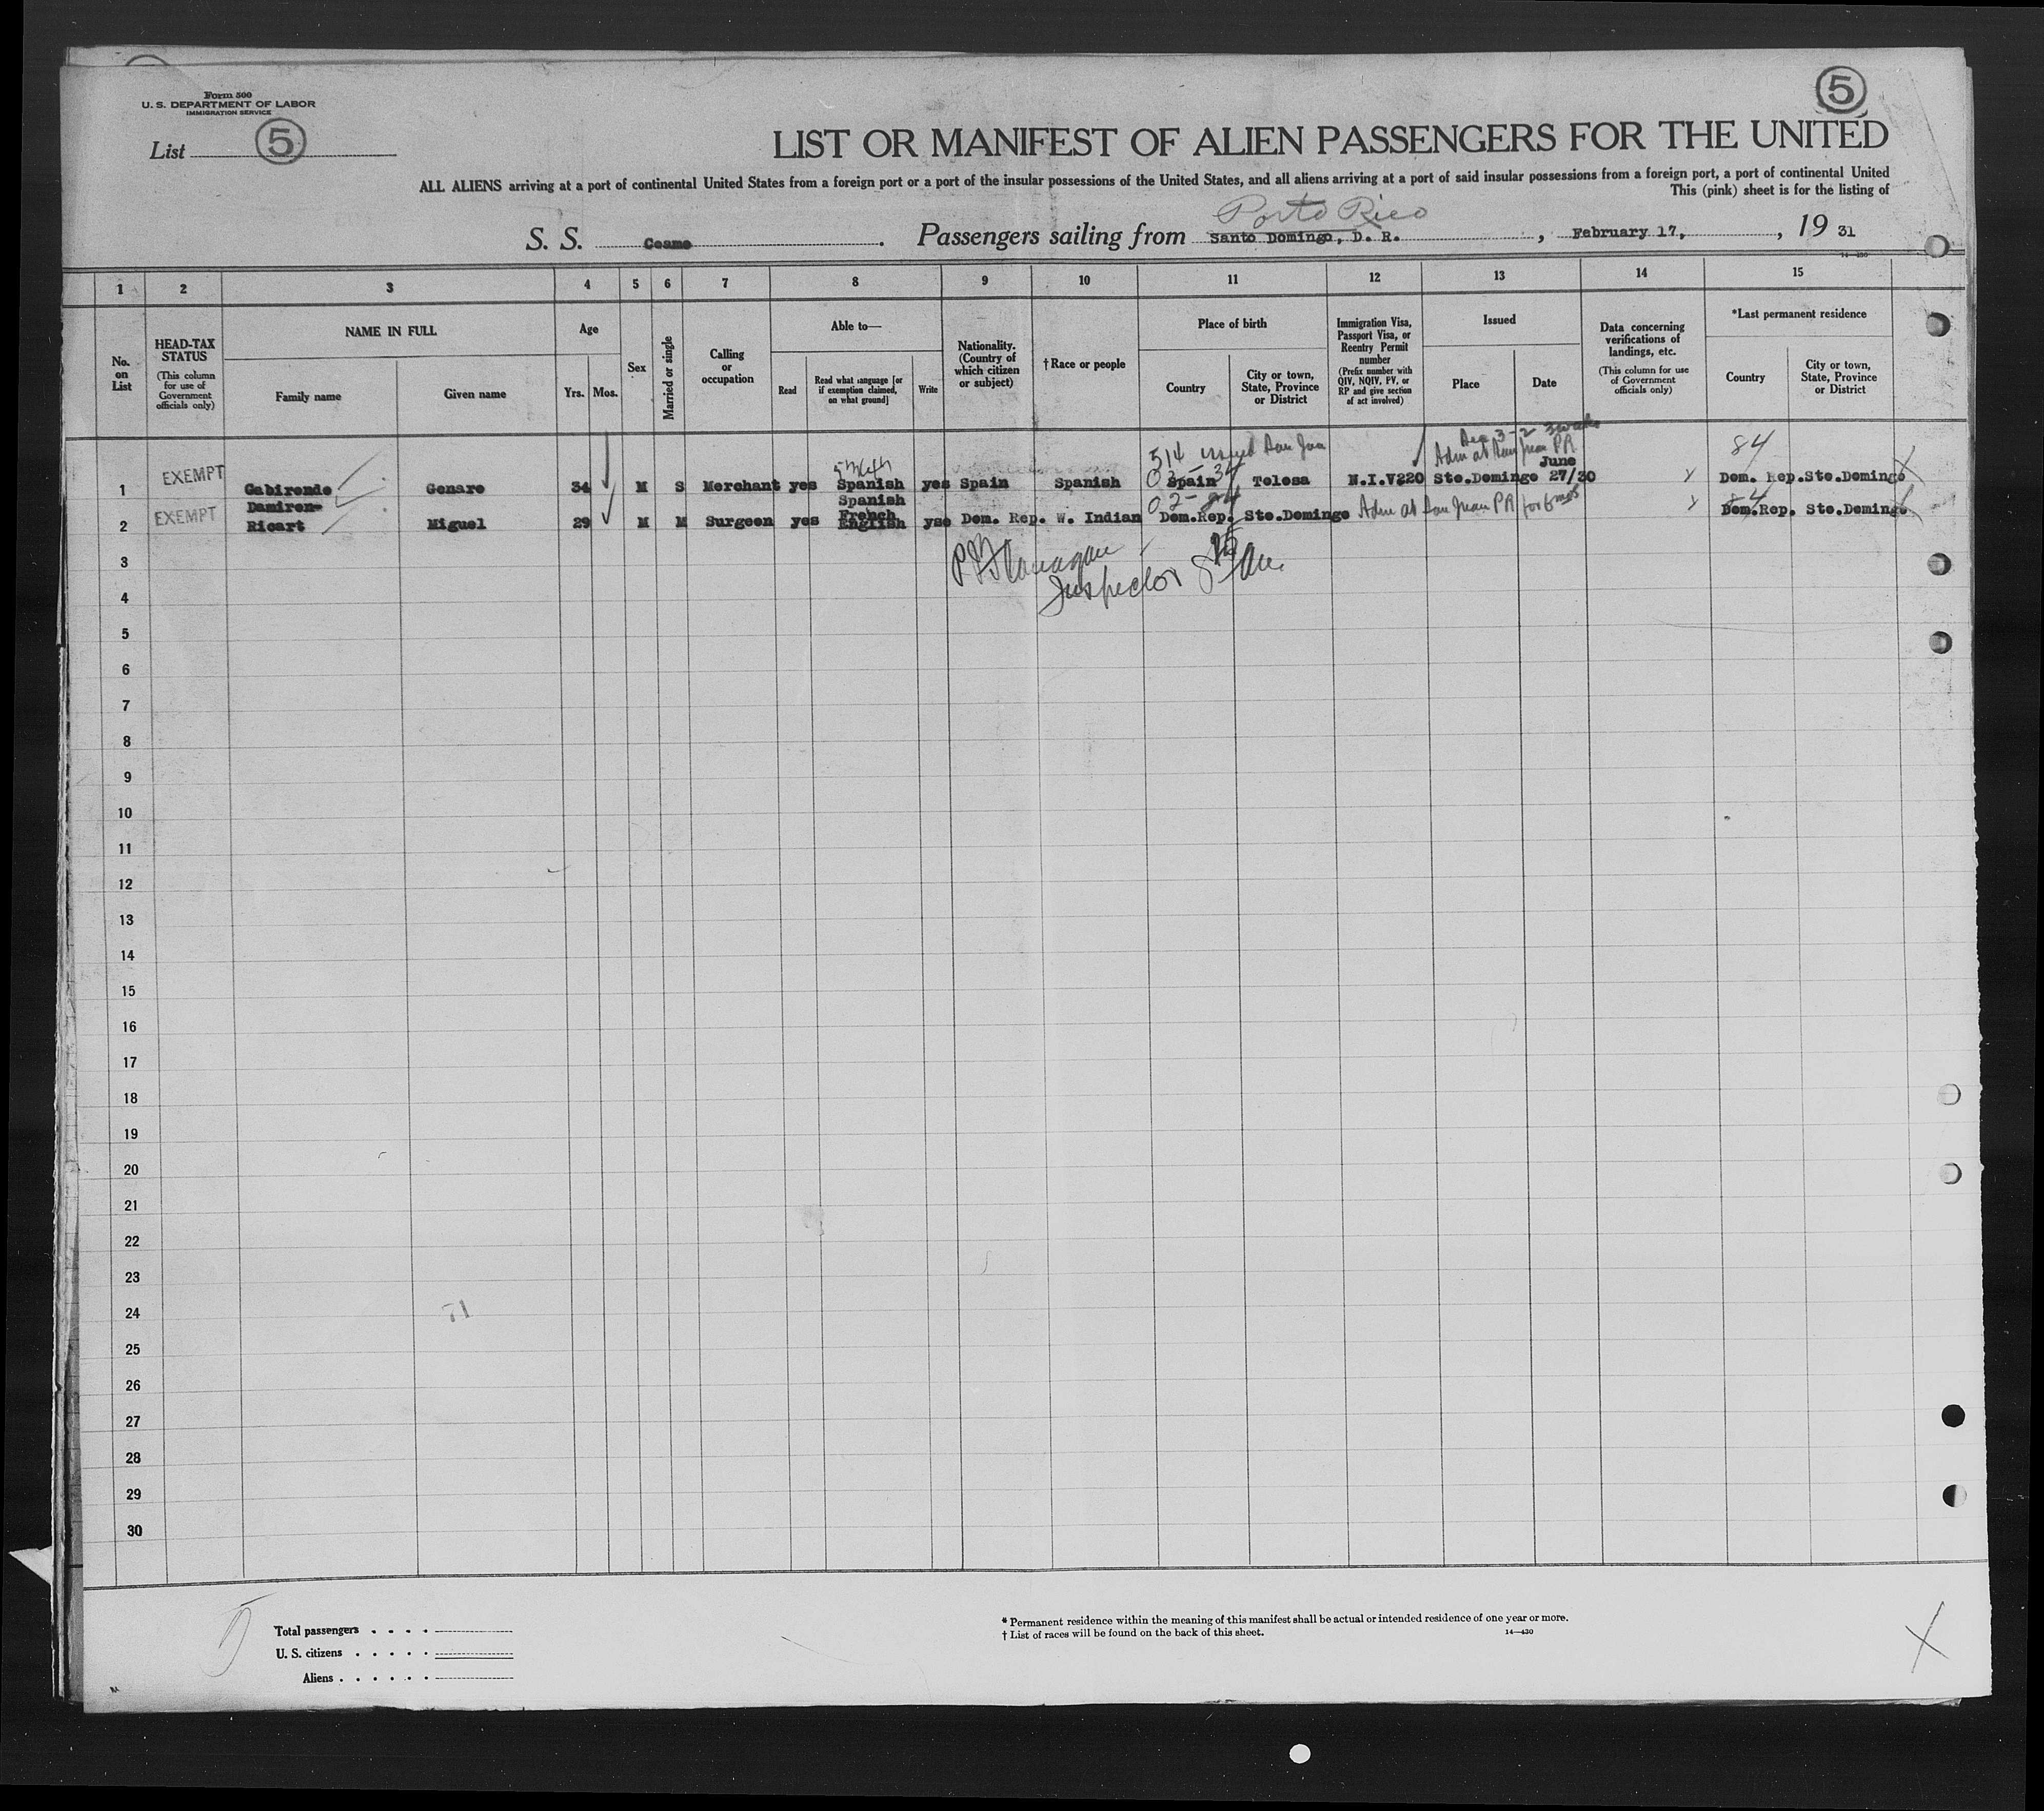 5
Form 500
U. S. DEPARTMENT OF LABOR
IMMIGRATION SERVICE
List 5
LIST OR MANIFEST OF ALIEN PASSENGERS FOR THE UNITED
ALL ALIENS arriving at a port of continental United States from a foreign port or a port of the insular possessions of the United States, and all aliens arriving at a port of said insular possessions from a foreign port, a port of continental United
This (pink) sheet is for the listing of
Porto Rico
S. S. Coamo. Passengers sailing from Santo Domingo, D. R., February 17, , 19 31
14—430
1 2 3 4 5 6 7 8 9 10 11 12 13 14 15
No. on List
HEAD-TAX STATUS
(This column for use of Government officials only)
NAME IN FULL
Family name Given name
Age
Yrs. Mos.
Sex
Married or single
Calling or occupation
Able to—
Read
Read what language [or if exemption claimed, on what ground]
Write
Nationality. (Country of which citizen or subject)
†Race or people
Place of birth
Country
City or town, State, Province or District
Immigration Visa, Passport Visa, or Reentry Permit number
(Prefix number with QIV, NQIV, PV, or RP and give section of act involved)
Issued
Place Date
Data concerning verifications of landings, etc.
(This column for use of Government officials only)
*Last permanent residence
Country
City or town, State, Province or District
84
Adm at San Juan PR
June
1 EXEMPT Gabirondo Genaro 34 M S Merchant yes Spanish yes Spain Spanish Spain Tolosa N.I.V220 Sto.Domingo 27/30 Dom. Rep. Sto.Domingo
Damiron- Spanish
French 84
2 EXEMPT Ricart Miguel 29 M M Surgeon yes English yse Dom. Rep. W. Indian Dom.Rep. Sto.Domingo Adm at San Juan PR for 6 mos Dom.Rep. Sto.Domingo
3
Inspector
4
5
6
7
8
9
10
11
12
13
14
15
16
17
18
19
20
21
22
23
24
71
25
26
27
28
29
30
Total passengers . . . .
U. S. citizens . . . . .
Aliens . . . . . .
* Permanent residence within the meaning of this manifest shall be actual or intended residence of one year or more.
† List of races will be found on the back of this sheet.
14—430